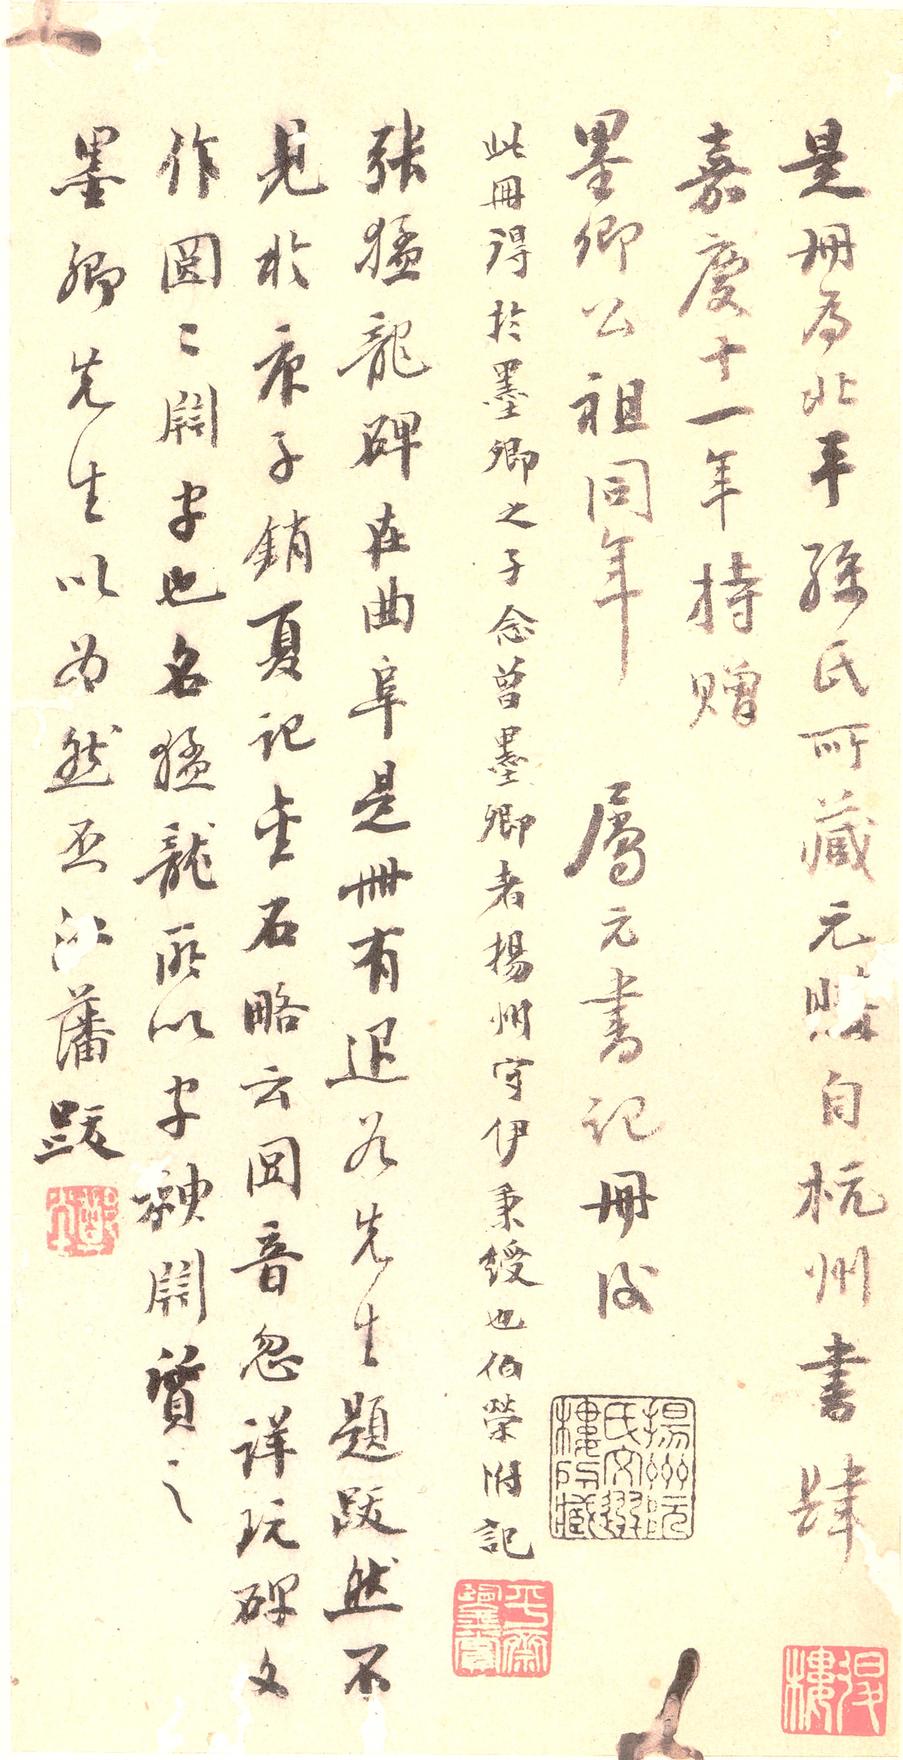 是冊為北平孫氏所藏元購自杭州書肆
嘉慶十一年持贈
墨卿公祖同年 屬元書記冊後
揚州阮氏文選樓所藏
此冊得於墨卿之子念曾墨卿者揚州守伊秉綬也伯榮附記
平齋鑒賞
張猛龍碑在曲阜是冊有退谷先生題跋然不
見於庚子銷夏記金石略云音忽詳玩碑文
作字也名猛龍所以字神質之
墨卿先生以為然否江藩跋